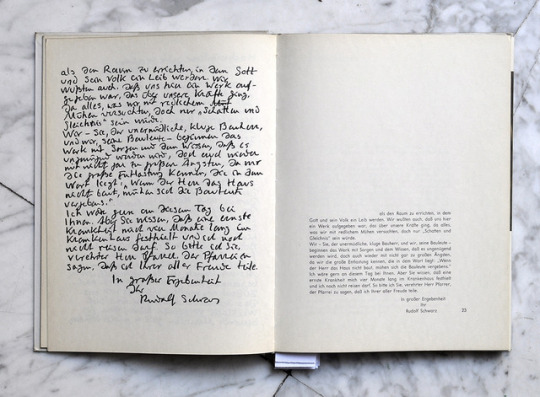 als den Raum zu errichten, in dem Gott
und sein Volk ein Leib werden. Wir
wußten auch, daß uns hier ein Werk auf-
gegeben war, das über unsere Kräfte ging,
da alles, was wir mit redlichem
Mühen versuchten, doch nur „Schatten und
Gleichnis" sein würde.
Wir – Sie, der unermüdliche, kluge Bauherr,
und wir, seine Bauleute – begannen das
Werk mit Sorgen und dem Wissen, daß es
ungenügend werden wird, doch auch wieder
mit nicht gar zu großen Ängsten, da wir
die große Entlastung kennen, die in dem
Wort liegt: „Wenn der Herr das Haus
nicht baut, mühen sich die Bauleute
vergebens."
Ich wäre gern an diesem Tag bei
Ihnen. Aber Sie wissen, daß eine ernste
Krankheit mich vier Monate lang im
Krankenhaus festhielt und ich noch
nicht reisen darf. So bitte ich Sie,
verehrter Herr Pfarrer, der Pfarrei zu
sagen, daß ich Ihrer aller Freude teile.
In großer Ergebenheit
Ihr
Rudolf Schwarz
als den Raum zu errichten, in dem
Gott und sein Volk ein Leib werden. Wir wußten auch, daß uns hier
ein Werk aufgegeben war, das über unsere Kräfte ging, da alles,
was wir mit redlichem Mühen versuchten, doch nur „Schatten und
Gleichnis" sein würde.
Wir – Sie, der unermüdliche, kluge Bauherr, und wir, seine Bauleute –
begannen das Werk mit Sorgen und dem Wissen, daß es ungenügend
werden wird, doch auch wieder mit nicht gar zu großen Ängsten,
da wir die große Entlastung kennen, die in dem Wort liegt: „Wenn
der Herr das Haus nicht baut, mühen sich die Bauleute vergebens."
Ich wäre gern an diesem Tag bei Ihnen. Aber Sie wissen, daß eine
ernste Krankheit mich vier Monate lang im Krankenhaus festhielt
und ich noch nicht reisen darf. So bitte ich Sie, verehrter Herr Pfarrer,
der Pfarrei zu sagen, daß ich Ihrer aller Freude teile.
In großer Ergebenheit
Ihr
Rudolf Schwarz
23